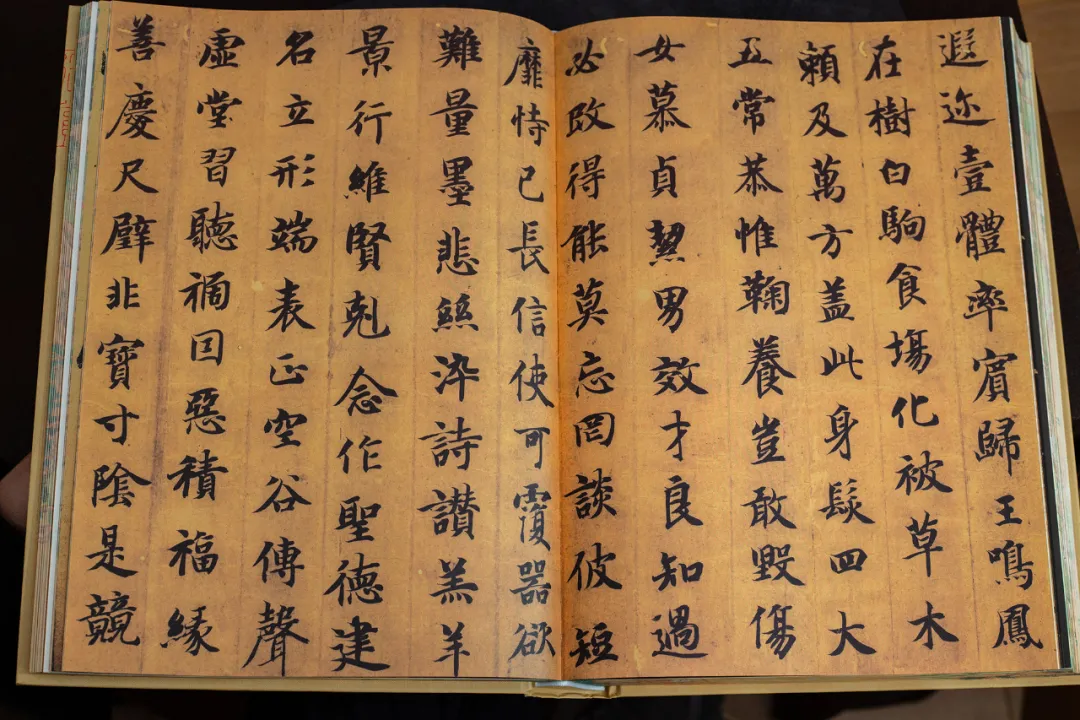 遐迩壹體率賓歸王鳴鳳
在樹白駒食塲化被草木
賴及萬方盖此身髮四大
五常恭惟鞠養豈敢毀傷
女慕貞絜男效才良知過
必改得能莫忘罔談彼短
靡恃己長信使可覆器欲
難量墨悲絲染詩讚羔羊
景行維賢剋念作聖德建
名立形端表正空谷傳聲
虛堂習聽禍因惡積福緣
善慶尺璧非寶寸陰是競